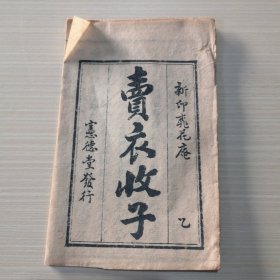 新印飛花庵
乙
賣衣收子
憲德堂發行